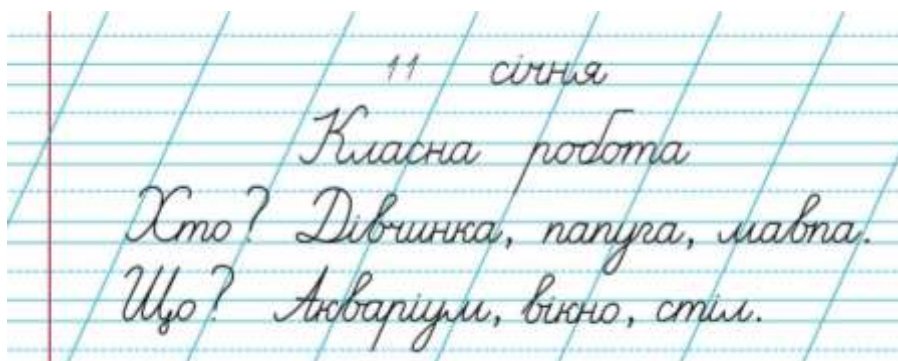 11 січня
Класна робота
Хто? Дівчинка, папуга, мавпа.
Що? Акваріум, вікно, стіл.